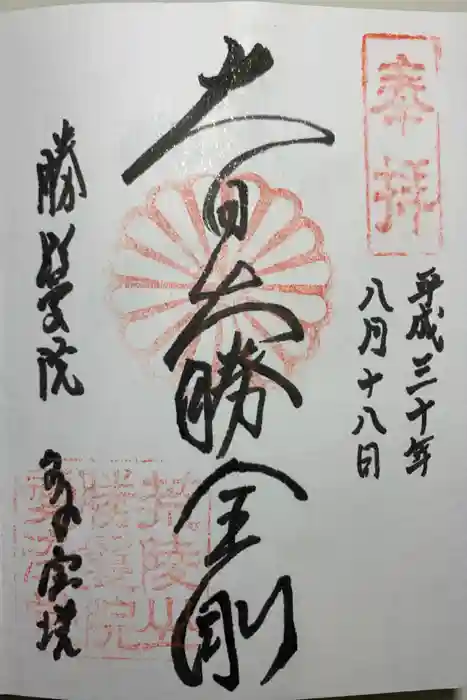 奉拝
平成三十年
八月十八日
大日大勝金剛
勝鬘院 多宝塔
荒陵山
勝鬘院